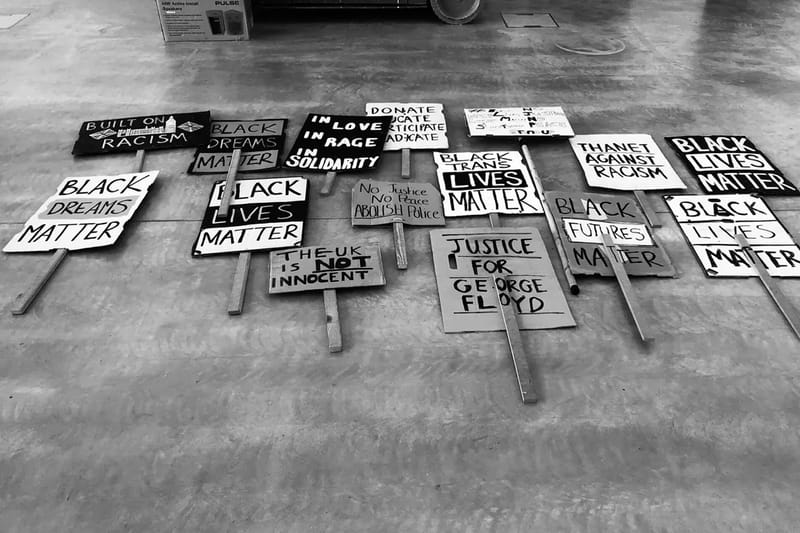 PULSE
BUILT ON
RACISM
BLACK
DREAMS
MATTER
IN LOVE
IN RAGE
IN
SOLIDARITY
DONATE
THANET
AGAINST
RACISM
BLACK
LIVES
MATTER
BLACK
DREAMS
MATTER
BLACK
LIVES
MATTER
No Justice
No Peace
ABOLISH POLICE
BLACK
TRANS
LIVES
MATTER
BLACK
FUTURES
MATTER
BLACK
LIVES
MATTER
THE UK
IS NOT
INNOCENT
JUSTICE
FOR
GEORGE
FLOYD